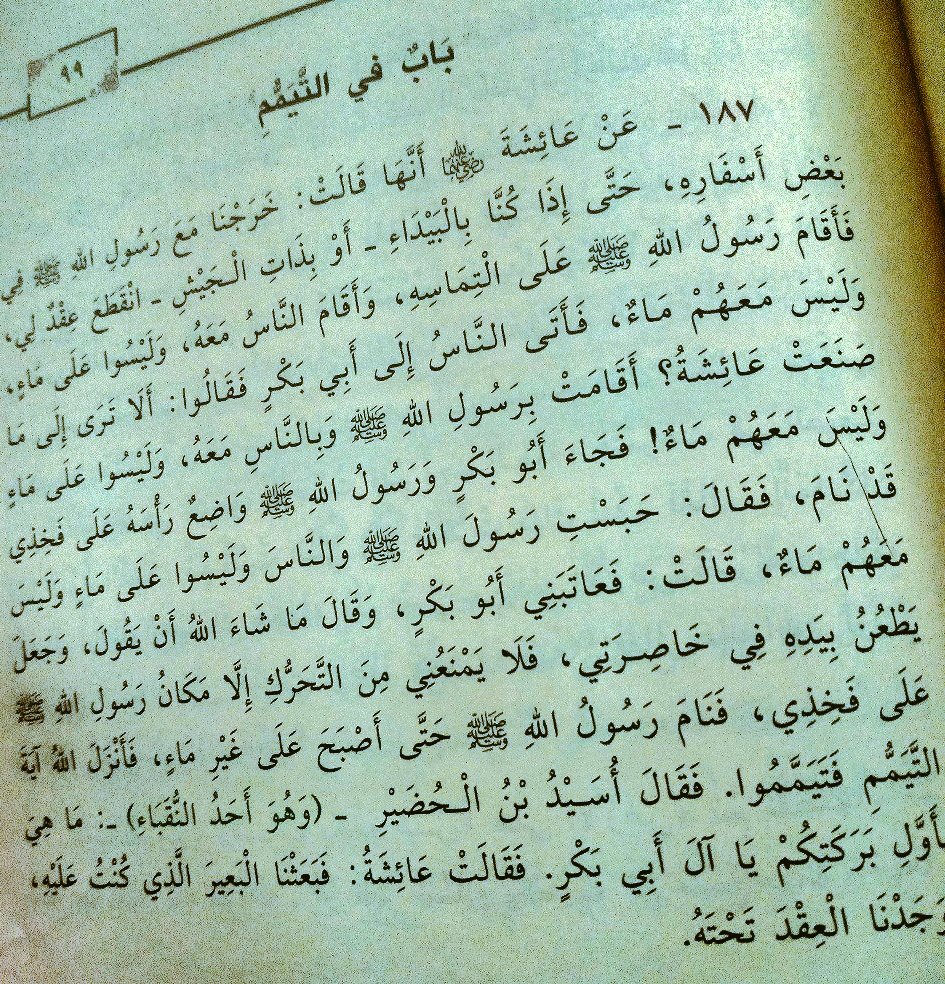 ٩٩
بَابٌ في التَّيَمُّمِ
١٨٧ - عَنْ عَائِشَةَ رَضِيَ اللهُ عَنْهَا أَنَّهَا قَالَتْ: خَرَجْنَا مَعَ رَسُولِ اللهِ ﷺ فِي
بَعْضِ أَسْفَارِهِ، حَتَّى إِذَا كُنَّا بِالْبَيْدَاءِ - أَوْ بِذَاتِ الْجَيْشِ - انْقَطَعَ عِقْدٌ لِي،
فَأَقَامَ رَسُولُ اللهِ ﷺ عَلَى الْتِمَاسِهِ، وَأَقَامَ النَّاسُ مَعَهُ، وَلَيْسُوا عَلَى مَاءٍ،
وَلَيْسَ مَعَهُمْ مَاءٌ، فَأَتَى النَّاسُ إِلَى أَبِي بَكْرٍ فَقَالُوا: أَلَا تَرَى إِلَى مَا
صَنَعَتْ عَائِشَةُ؟ أَقَامَتْ بِرَسُولِ اللهِ ﷺ وَبِالنَّاسِ مَعَهُ، وَلَيْسُوا عَلَى مَاءٍ
وَلَيْسَ مَعَهُمْ مَاءٌ! فَجَاءَ أَبُو بَكْرٍ وَرَسُولُ اللهِ ﷺ وَاضِعٌ رَأْسَهُ عَلَى فَخِذِي
قَدْ نَامَ، فَقَالَ: حَبَسْتِ رَسُولَ اللهِ ﷺ وَالنَّاسَ وَلَيْسُوا عَلَى مَاءٍ وَلَيْسَ
مَعَهُمْ مَاءٌ، قَالَتْ: فَعَاتَبَنِي أَبُو بَكْرٍ، وَقَالَ مَا شَاءَ اللهُ أَنْ يَقُولَ، وَجَعَلَ
يَطْعُنُ بِيَدِهِ فِي خَاصِرَتِي، فَلَا يَمْنَعُنِي مِنَ التَّحَرُّكِ إِلَّا مَكَانُ رَسُولِ اللهِ ﷺ
عَلَى فَخِذِي، فَنَامَ رَسُولُ اللهِ ﷺ حَتَّى أَصْبَحَ عَلَى غَيْرِ مَاءٍ، فَأَنْزَلَ اللهُ آيَةَ
التَّيَمُّمِ فَتَيَمَّمُوا. فَقَالَ أُسَيْدُ بْنُ الْحُضَيْرِ - (وَهُوَ أَحَدُ النُّقَبَاءِ) -: مَا هِيَ
بِأَوَّلِ بَرَكَتِكُمْ يَا آلَ أَبِي بَكْرٍ. فَقَالَتْ عَائِشَةُ: فَبَعَثْنَا الْبَعِيرَ الَّذِي كُنْتُ عَلَيْهِ،
وَجَدْنَا الْعِقْدَ تَحْتَهُ.